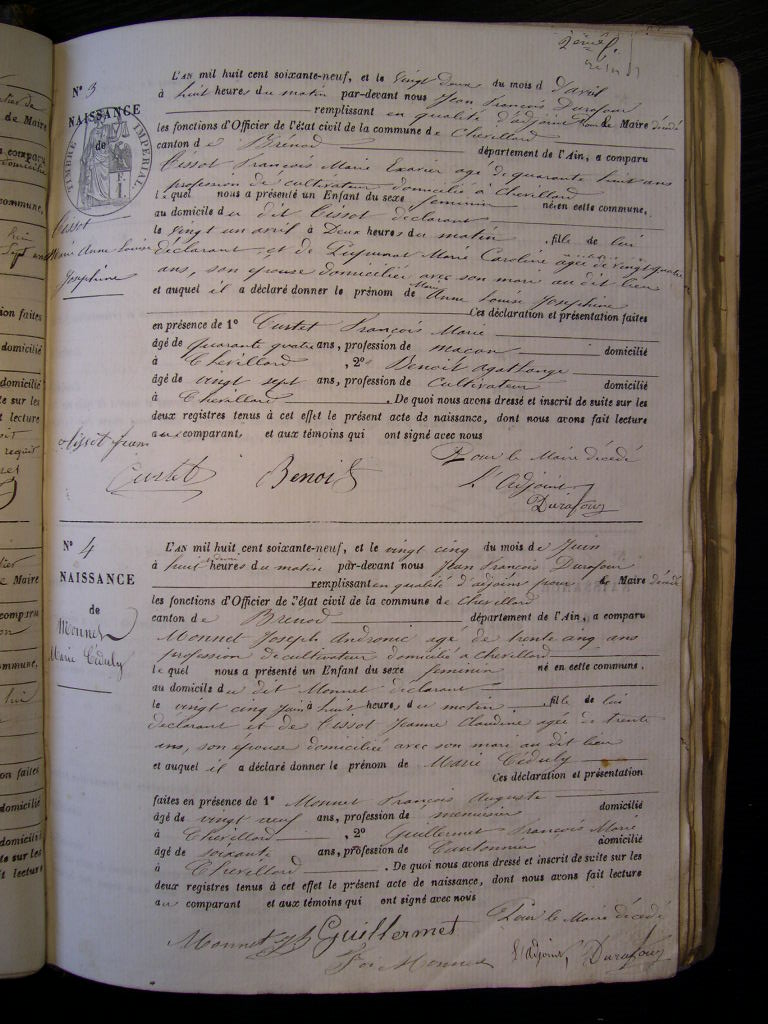 N° 3
NAISSANCE
de
TIMBRE IMPÉRIAL
Tissot
Marie Anne Louise
Joséphine
L'AN mil huit cent soixante-neuf, et le vingt deux du mois d'avril
à huit heures du matin par-devant nous Jean François Durafour
remplissant en qualité d'adjoint pour le Maire décédé
les fonctions d'Officier de l'état civil de la commune de Chevillard
canton de Brenod département de l'Ain, a comparu
Tissot François Marie Exavier agé de quarante huit ans
profession de cultivateur domicilié à Chevillard
lequel nous a présenté un Enfant du sexe féminin né en cette commune,
au domicile du dit Tissot déclarant
le vingt un avril à Deux heures du matin, fille de lui
déclarant et de Marie Caroline agée de vingt quatre
ans, son épouse domiciliée avec son mari au dit lieu
et auquel il a déclaré donner le prénom de Marie Anne Louise Joséphine
Ces déclaration et présentation faites
en présence de 1° Curtet François Marie
âgé de quarante quatre ans, profession de maçon domicilié
à Chevillard, 2° Benoit Agathange
âgé de vingt sept ans, profession de Cultivateur domicilié
à Chevillard. De quoi nous avons dressé et inscrit de suite sur les
deux registres tenus à cet effet le présent acte de naissance, dont nous avons fait lecture
au comparant et aux témoins qui ont signé avec nous
Pour le Maire décédé
Curtet Benoit L'Adjoint
Durafour
N° 4
NAISSANCE
de
Monnet
Marie Céduly
L'AN mil huit cent soixante-neuf, et le vingt cinq du mois de Juin
à huit heures du matin par-devant nous Jean François Durafour
remplissant en qualité d'adjoint pour le Maire décédé
les fonctions d'Officier de l'état civil de la commune de Chevillard
canton de Brenod département de l'Ain, a comparu
Monnet Joseph Andronic agé de trente cinq ans
profession de cultivateur domicilié à Chevillard
lequel nous a présenté un Enfant du sexe féminin né en cette commune,
au domicile du dit Monnet déclarant
le vingt cinq juin à huit heures du matin, fille de lui
déclarant et de Tissot Jeanne Claudine agée de trente
ans, son épouse domiciliée avec son mari au dit lieu
et auquel il a déclaré donner le prénom de Marie Céduly
Ces déclaration et présentation
faites en présence de 1° Monnet François Auguste
âgé de vingt neuf ans, profession de menuisier domicilié
à Chevillard, 2° Guillermet François Marie
âgé de soixante ans, profession de Cantonnier domicilié
à Chevillard. De quoi nous avons dressé et inscrit de suite sur les
deux registres tenus à cet effet le présent acte de naissance, dont nous avons fait lecture
au comparant et aux témoins qui ont signé avec nous
Pour le Maire décédé
Monnet Guillermet
Monnet L'adjoint, Durafour